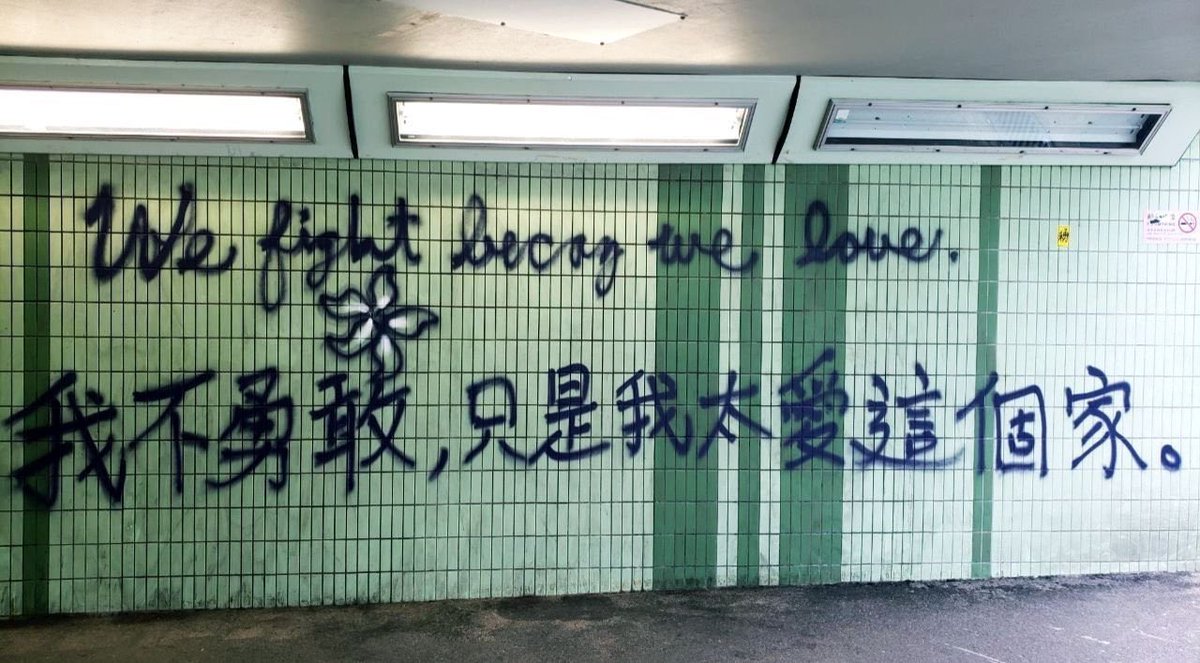 We fight becoz we love.
我不勇敢,只是我太愛這個家。